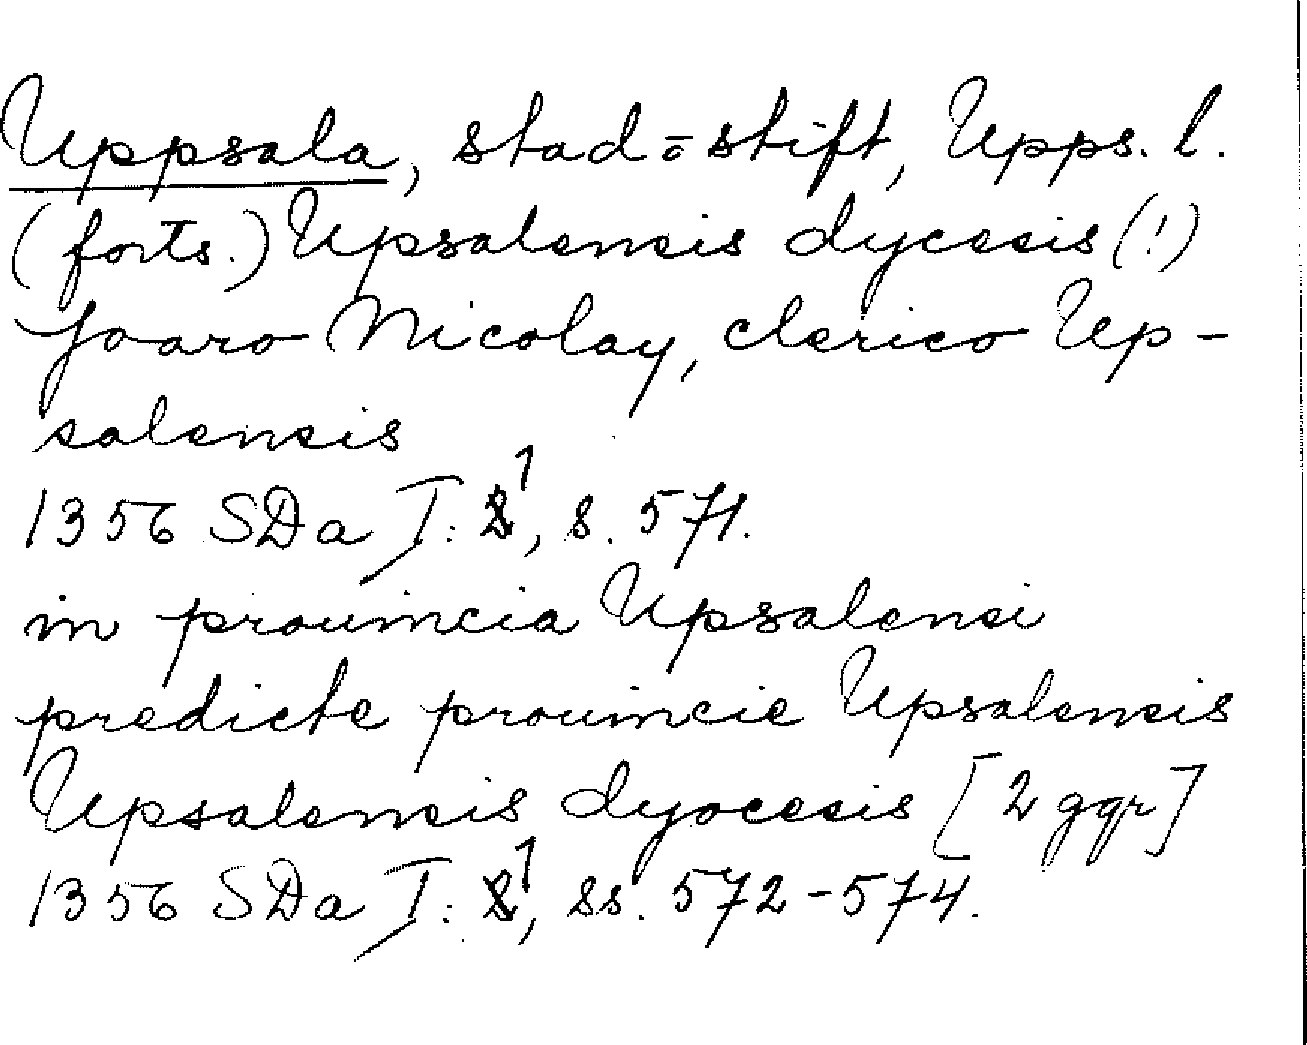 Uppsala, stad o stift, Upps. l.
(forts.) Upsalensis dycesis (!)
Joaro Nicolay, clerico Up-
salensis
1356 SDa I: 1, s. 571.
in prouincia Upsalensi
predicte prouincie Upsalensis
Upsalensis dyocesis [2 ggr]
1356 SDa I: 1, ss. 572-574.